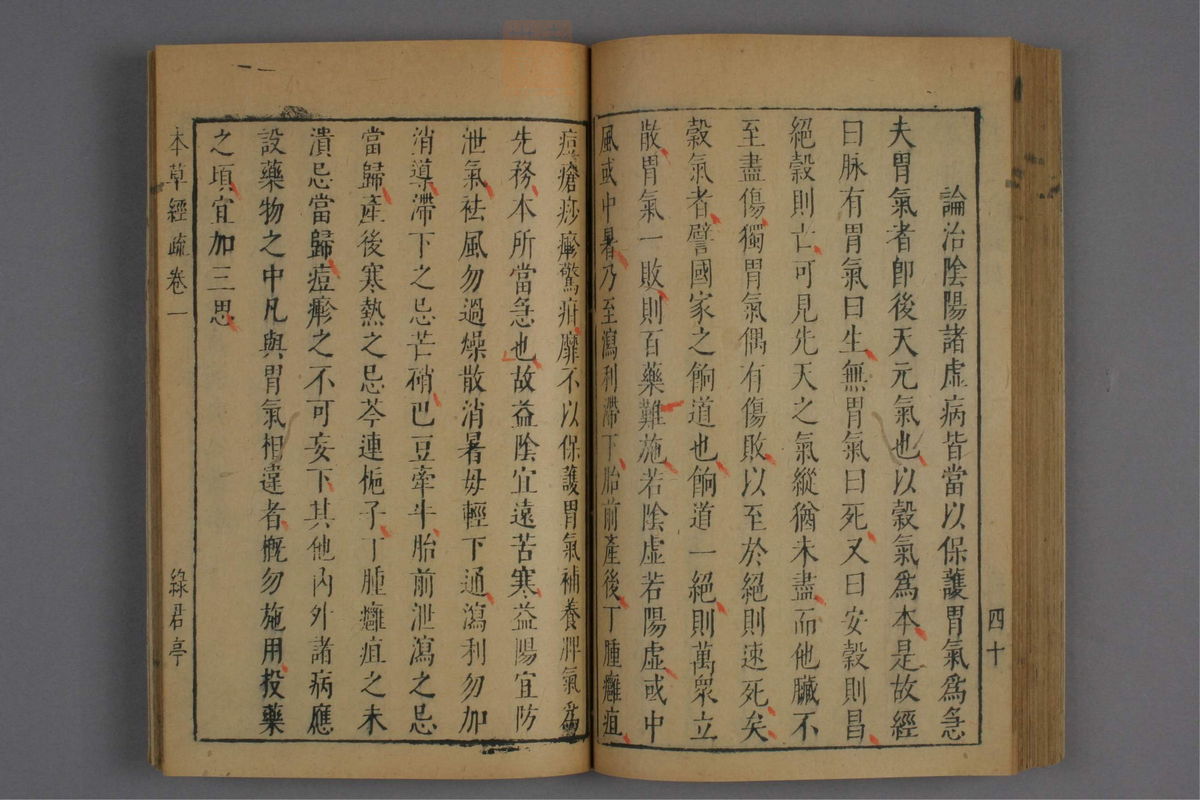 論治陰陽諸虛病皆當以保護胃氣爲急
夫胃氣者卽後天元氣也以穀氣爲本是故經
曰脉有胃氣曰生無胃氣曰死又曰安穀則昌
絕穀則亡可見先天之氣縱猶未盡而他臟不
至盡傷獨胃氣偶有傷敗以至於絕則速死矣
穀氣者譬國家之餉道也餉道一絕則萬眾立
散胃氣一敗則百藥難施若陰虛若陽虛或中
風或中暑乃至瀉利滯下胎前產後丁腫癰疽
四十
痘瘡痧疹驚疳靡不以保護胃氣補養脾氣爲
先務本所當急也故益陰宜遠苦寒益陽宜防
泄氣袪風勿過燥散消暑毋輕下通瀉利勿加
消導滯下之忌芒硝巴豆牽牛胎前泄瀉之忌
當歸產後寒熱之忌芩連梔子丁腫癰疽之未
潰忌當歸痘疹之不可妄下其他內外諸病應
設藥物之中凡與胃氣相違者概勿施用投藥
之頃宜加三思
本草經疏卷一
綠君亭